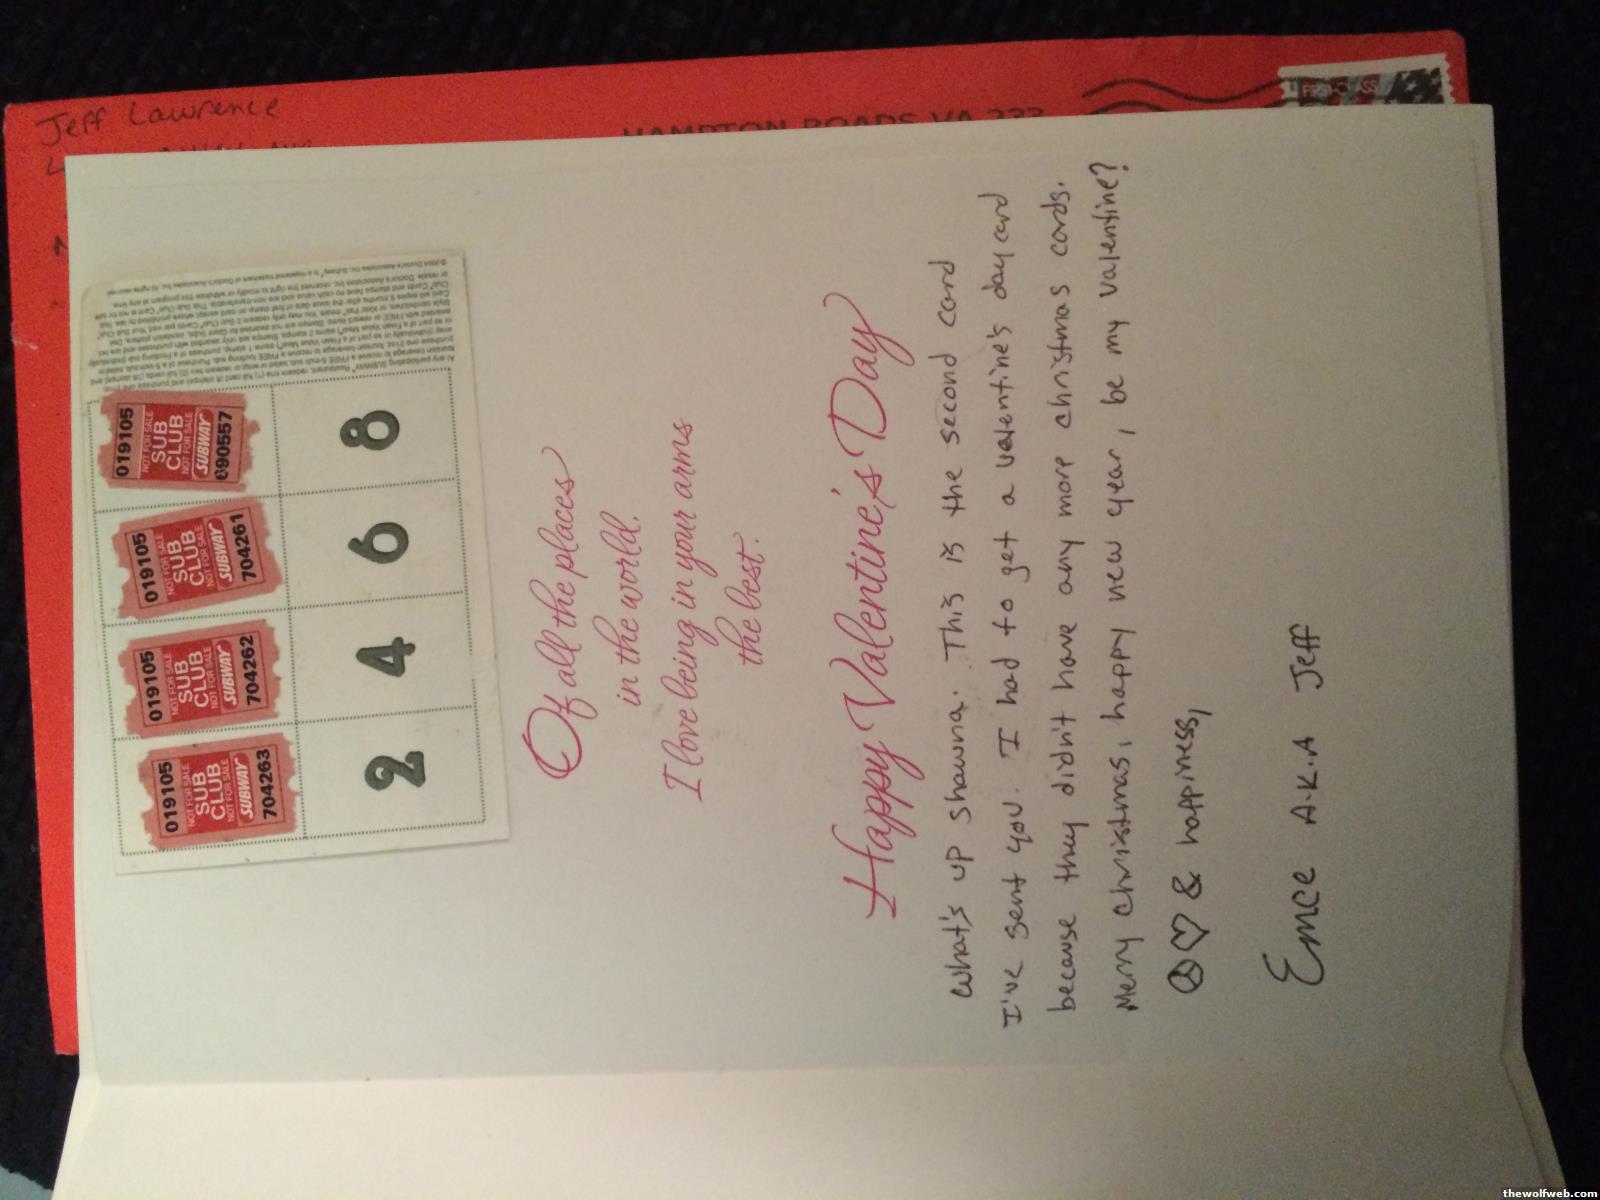 Jeff Lawrence
HAMPTON ROADS VA 233
FIRST-CLASS
At any participating SUBWAY® Restaurant, redeem one (1) full card (8 stamps) and purchase one 21oz.
019105
NOT FOR SALE
SUB
CLUB
NOT FOR SALE
SUBWAY
704263
019105
NOT FOR SALE
SUB
CLUB
NOT FOR SALE
SUBWAY
704262
019105
NOT FOR SALE
SUB
CLUB
NOT FOR SALE
SUBWAY
704261
019105
NOT FOR SALE
SUB
CLUB
NOT FOR SALE
SUBWAY
690557
2 4 6 8
Of all the places
in the world,
I love being in your arms
the best.
Happy Valentine's Day
What's up Shawna. This is the second card
I've sent you. I had to get a valentine's day card
because they didn't have any more christmas cards.
Merry christmas, happy new year, be my valentine?
& happiness,
Emce A.K.A Jeff
thewolfweb.com